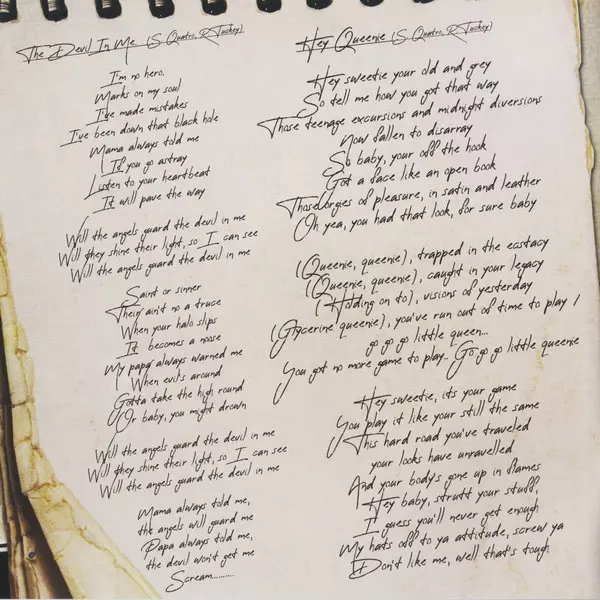 The Devil In Me. (S Quatro, R Tuckey)
I'm no hero.
Marks on my soul
I've made mistakes
I've been down that black hole
Mama always told me
If you go astray
Listen to your heartbeat
It will pave the way
Will the angels guard the devil in me
Will they shine their light, so I can see
Will the angels guard the devil in me
Saint or sinner
Their ain't no a truce
When your halo slips
It becomes a noose
My papa always warned me
When evil's around
Gotta take the high round
Or baby, you might drown
Will the angels guard the devil in me
Will they shine their light, so I can see
Will the angels guard the devil in me
Mama always told me,
the angels will guard me
Papa always told me,
the devil won't get me
Scream..........
Hey Queenie (S Quatro, R Tuckey)
Hey sweetie your old and grey
So tell me how you got that way
Those teenage excursions and midnight diversions
Now fallen to disarray
So baby, your off the hook
Got a face like an open book
Those orges of pleasure, in satin and leather
Oh yea, you had that look, for sure baby
(Queenie, queenie), trapped in the ecstacy
(Queenie, queenie), caught in your legacy
(Holding on to), visions of yesterday
(Glycerine queenie), you've run out of time to play /
go go go little queen...
You got no more game to play. Go go go little queenie
Hey sweetie, its your game
You play it like your still the same
This hard road you've traveled
your looks have unravelled
And your body's gone up in flames
Hey baby, strutt your stuff,
I guess you'll never get enough
My hats off to ya attitude, screw ya
Don't like me, well that's tough